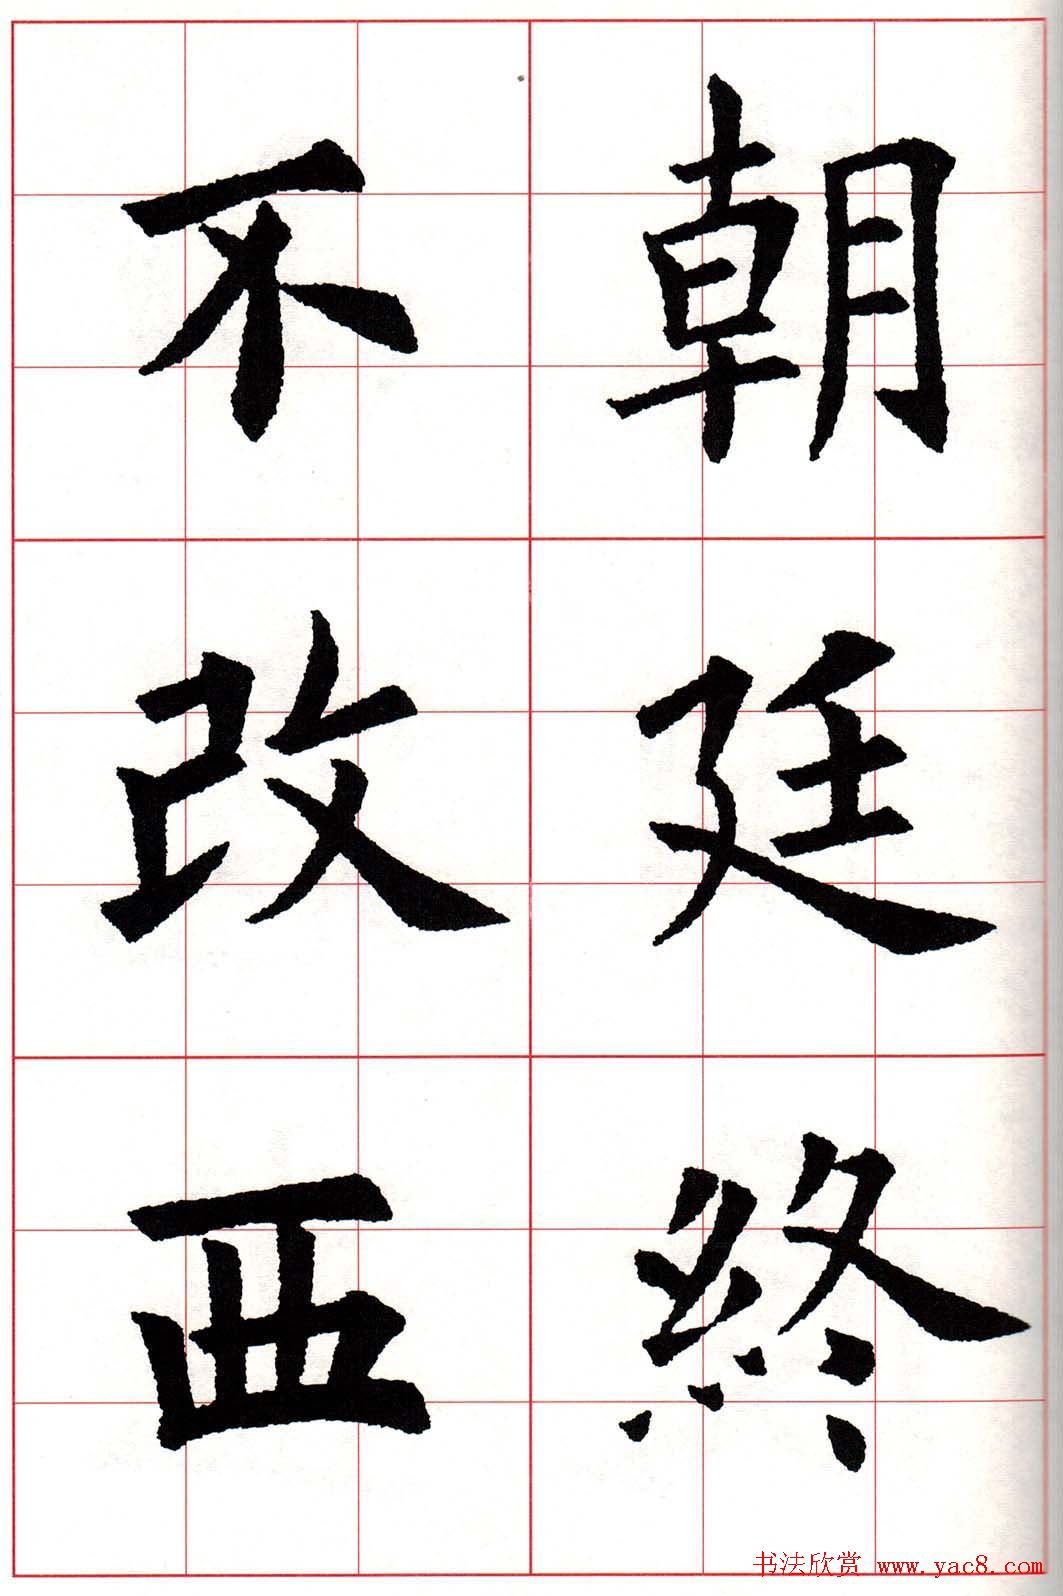 朝廷終
不改西
书法欣赏 www.yac8.com